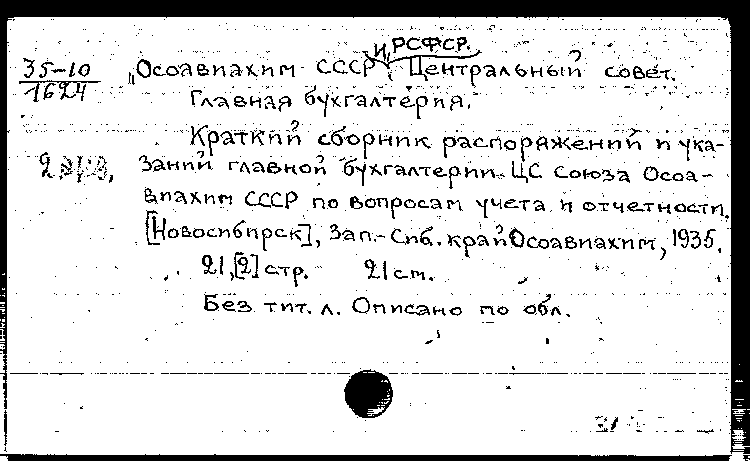 и РСФСР.
35-10 „Осоавиахим СССР, Центральный совет.
1624
Главная бухгалтерия.
Краткий сборник распоряжений и ука-
заний главной бухгалтерии ЦС Союза Осоа-
виахим СССР по вопросам учета и отчетности.
[Новосибирск], Зап.-Сиб. край Осоавиахим, 1935.
21,[2] стр. 21 см.
Без тит. л. Описано по обл.